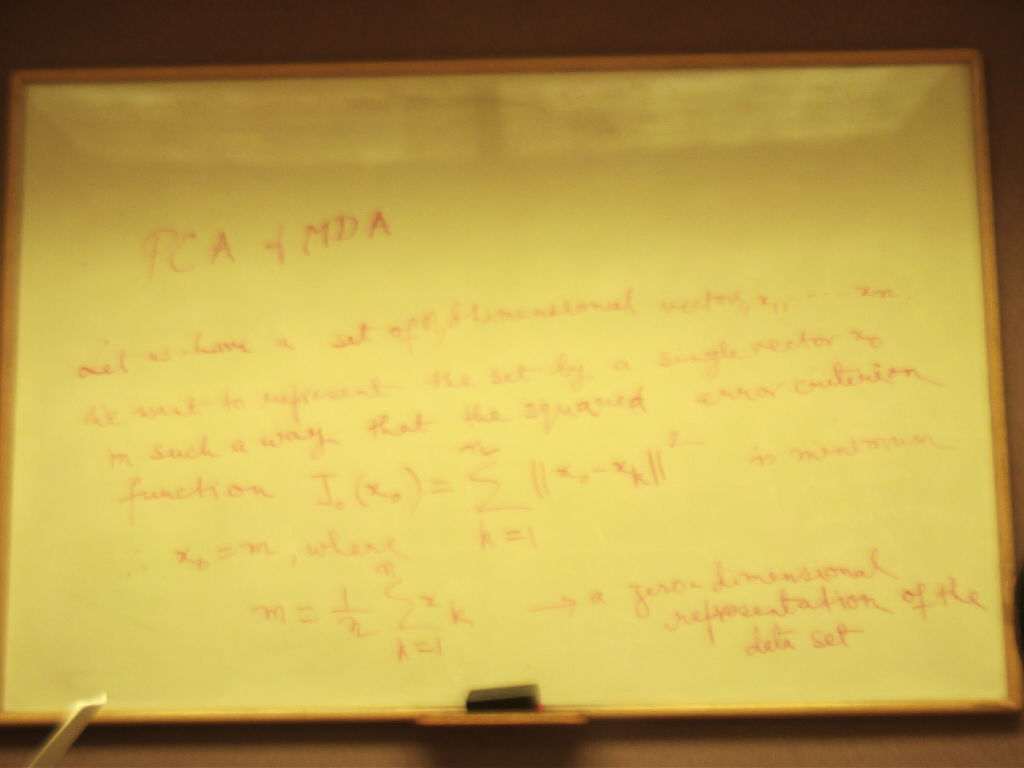 PCA & MDA
Let us have a set of n d-dimensional vectors, x₁, ..... xn.
We want to represent the set by a single vector x₀
in such a way that the squared error criterion
function J₀(x₀) = Σ_{k=1}^{n} ||x₀ - x_k||² is minimum
∴ x₀ = m, where
m = 1/n Σ_{k=1}^{n} x_k → a zero-dimensional
representation of the
data set